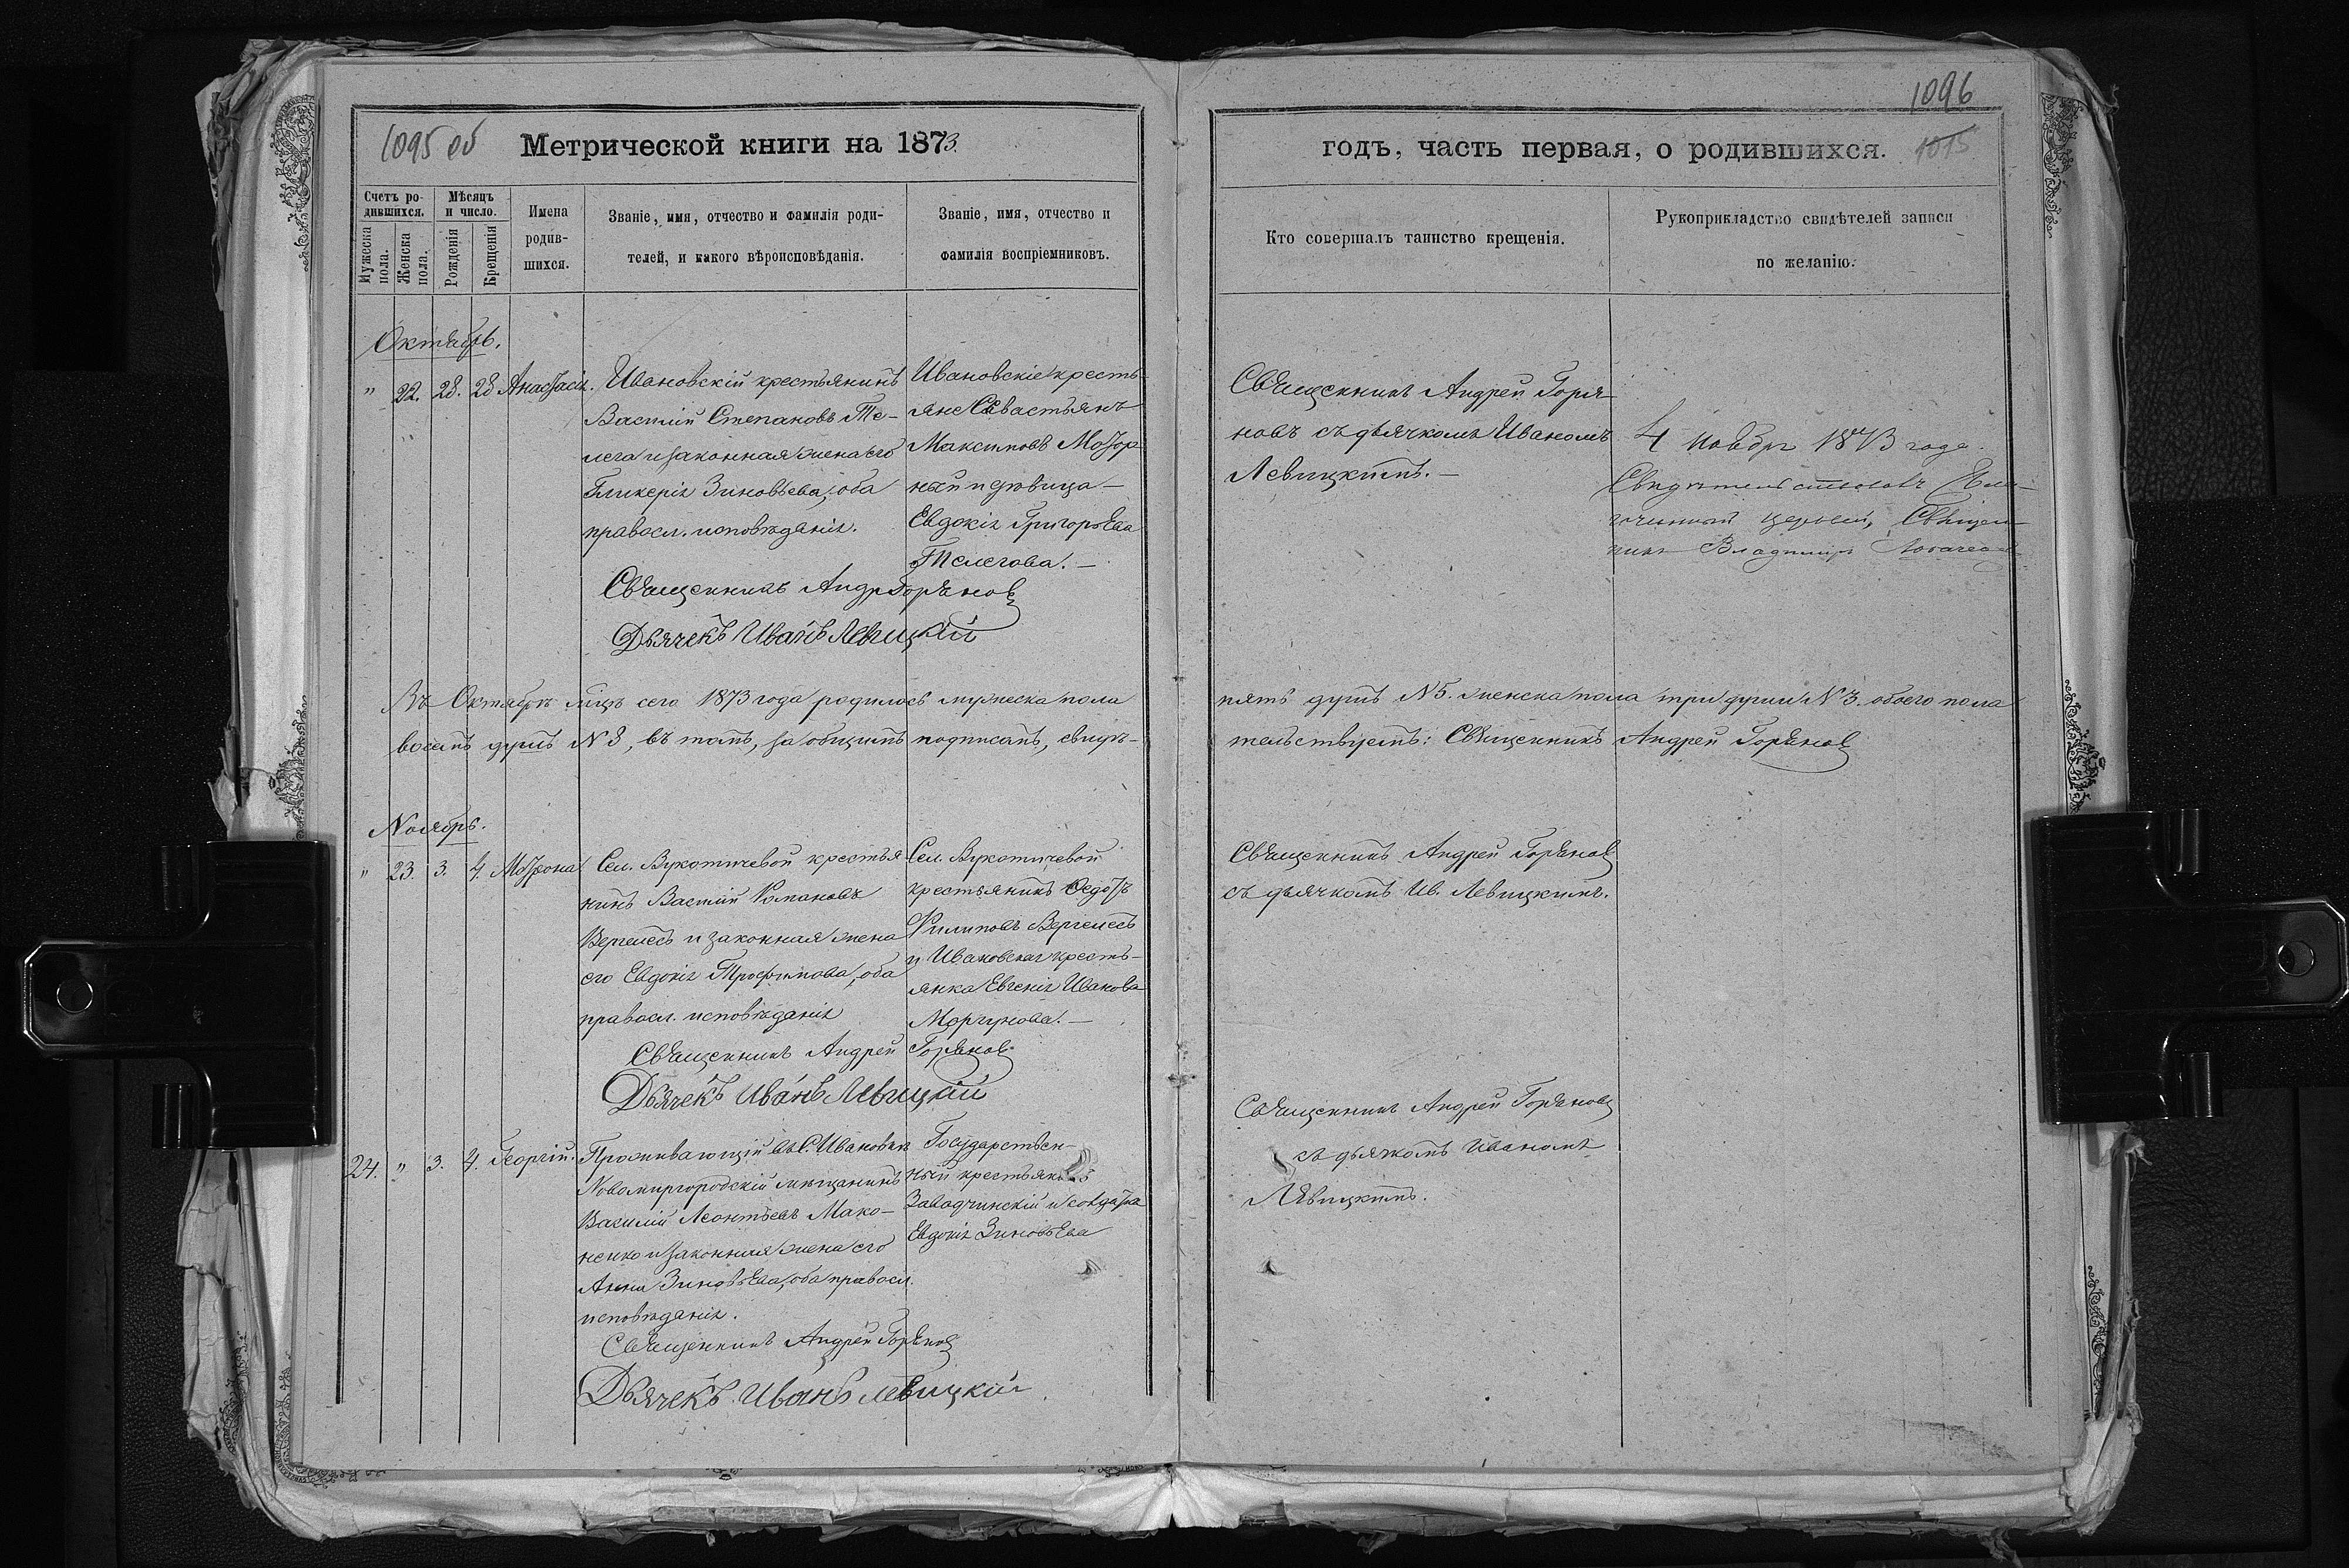 1095 об
Метрической книги на 1873.
Счетъ ро-
дившихся.
Мужеска
пола.
Женска
пола.
Мѣсяцъ
и число.
Рожденія
Крещенія
Имена
родив-
шихся.
Званіе, имя, отчество и фамилія роди-
телей, и какого вѣроисповѣданія.
Званіе, имя, отчество и
фамилія воспріемниковъ.
Октябрь.
" 22. 28. 28 Анастасія.
Ивановскій крестьянинъ
Василій Степановъ Те-
лега и законная жена его
Гликерія Зиновьева, оба
правосл. исповѣданія.
Ивановскіе кресть-
яне Севастьянъ
Максимовъ
и дѣвица
Евдокія Григорьева
Телегова. —
Священникъ Андр Горяновъ
Дьячекъ Иванъ Левицкій
Въ Октябрѣ мцѣ сего 1873 года родилось мужеска пола
восемь душъ N 8, въ томъ, за общимъ подписомъ, свидѣ-
Ноябрь.
" 23. 3. 4. Мотрона
Сел. Вукотичевой крестья
нинъ Василій Романовъ
Вергелесъ и законная жена
его Евдокія Трофимова, оба
правосл. исповѣданія
Сел. Вукотичевой
крестьянинъ Федотъ
Филиповъ Вергелесъ
и Ивановская кресть-
янка Евгенія Иванова
Моргунова. —
Священникъ Андрей Горяновъ
Дьячекъ Иванъ Левицкій
24. " 3. 4. Георгій.
Проживающій въ С. Ивановкѣ
Новомиргородскій мещанинъ
Василій Леонтьевъ Мако-
ненко и законная жена его
Анна Зиновьева, оба правосл.
исповѣданія.
Государствен-
ный крестьянинъ
Завадчинскій и солдатка
Евдокія Зиновьева
Священникъ Андрей Горяновъ
Дьячекъ Иванъ Левицкій
1096
годъ, часть первая, о родившихся. 1015
Кто совершалъ таинство крещенія.
Рукоприкладство свидѣтелей записи
по желанію.
Священникъ Андрей Горя-
новъ съ дьячкомъ Иваномъ
Левицкимъ. —
4 ноября 1873 года.
Свидѣтельствовалъ Бла-
гочинный церквей, Священ-
никъ Владимиръ
пять душъ N 5. женска пола три души N 3. обоего пола
тельствуетъ: Священникъ Андрей Горяновъ
Священникъ Андрей Горяновъ
съ дьячкомъ Ив. Левицкимъ.
Священникъ Андрей Горяновъ
съ дьячкомъ Иваномъ
Левицкимъ.